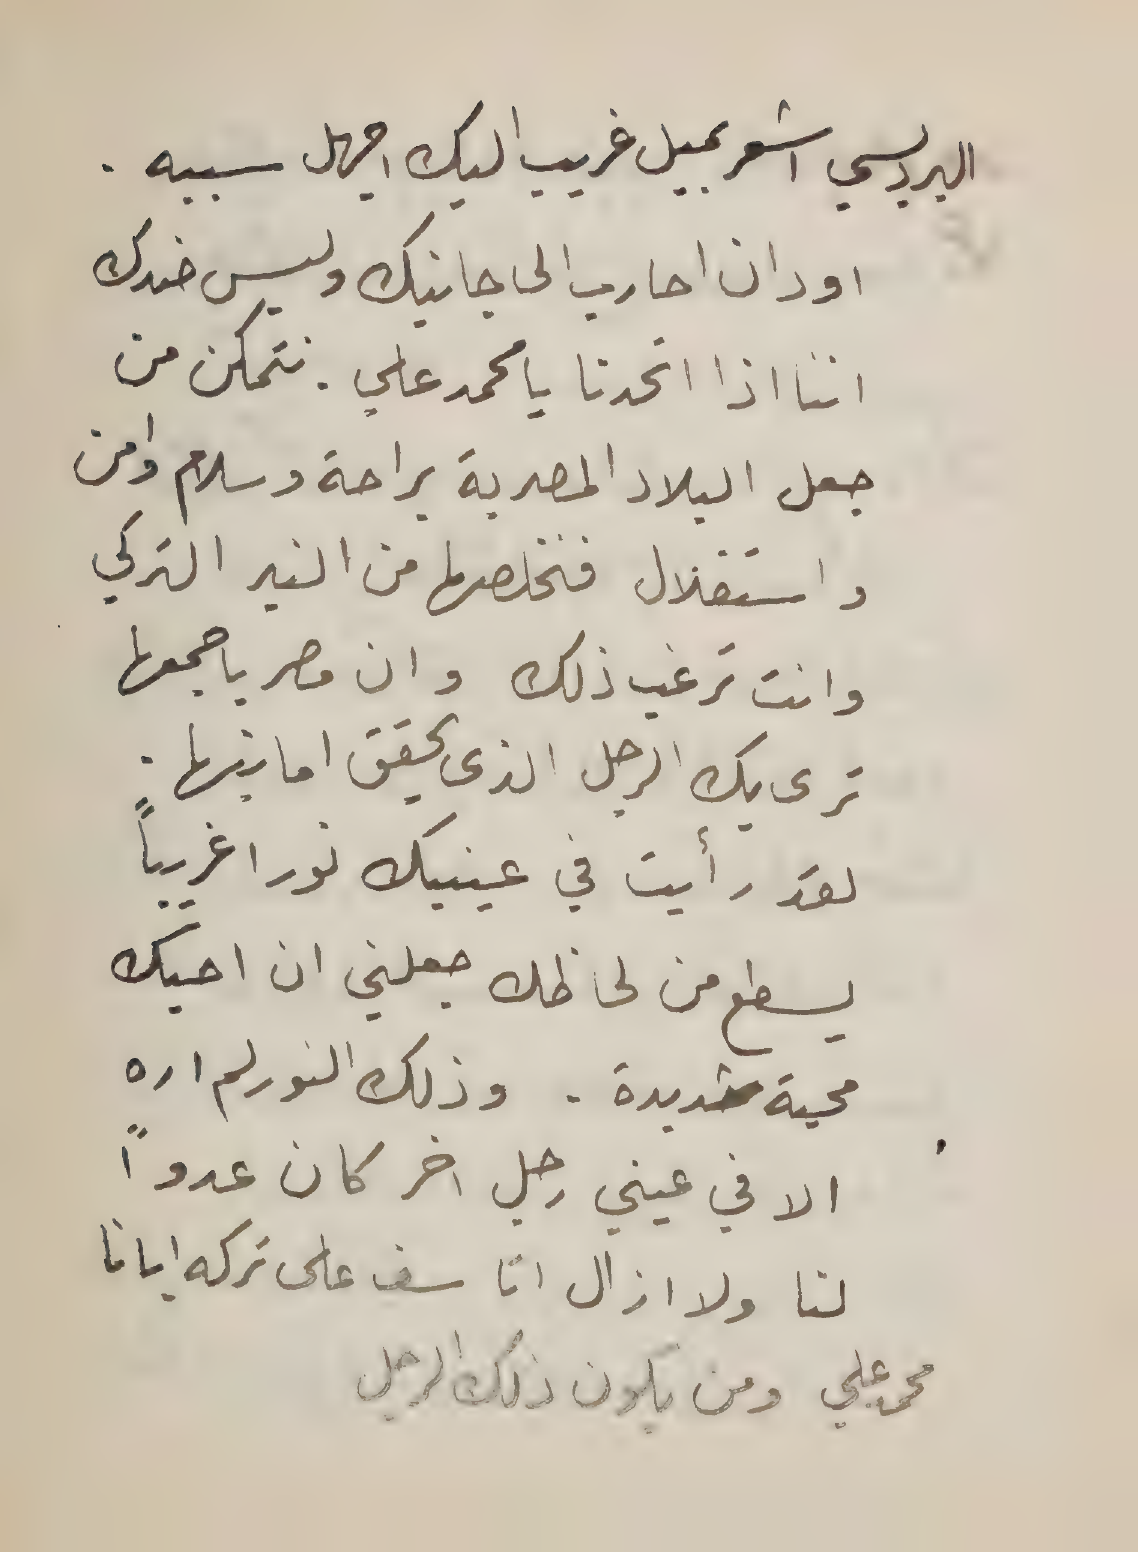 البرديسي اشعر بميل غريب اليك اجهل سببه .
اود ان احارب الى جانبك وليس ضدك
اننا اذا اتحدنا يا محمد علي . نتمكن من
جعل البلاد المصرية براحة وسلام وامن
واستقلال فنخلصها من النير التركي
وانت ترغب ذلك وان مصر باجمعها
ترى بك الرجل الذى يحقق امانيها .
لقد رأيت في عينيك نورا غريباً
يسطع من لحاظك جعلني ان احبّك
محبة شديدة . وذلك النور لم اره
الا في عيني رجل اخر كان عدواً
لنا ولا ازال اتاسف على تركه ايانا
محمد علي ومن يكون ذلك الرجل